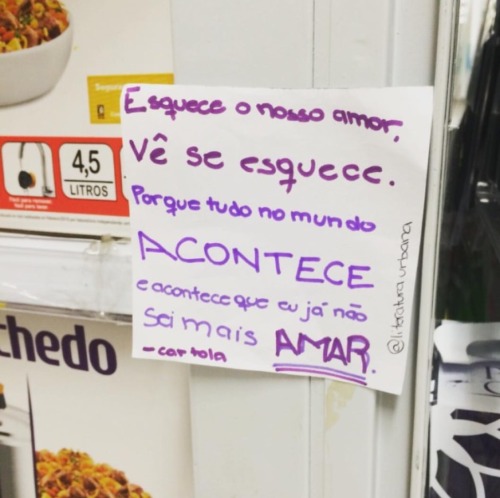 Esquece o nosso amor,
vê se esquece.
Porque tudo no mundo
ACONTECE
e acontece que eu já não
sei mais AMAR.
- cartola
@literatura urbana
4,5
LITROS
Fácil para remover,
chedo